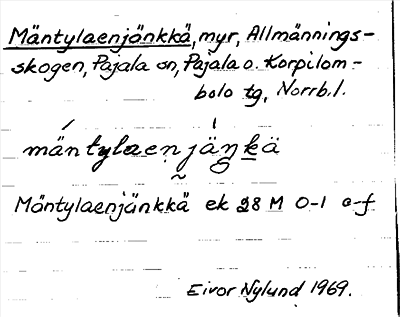 Mäntylaenjänkkä, myr, Allmännings-
skogen, Pajala sn, Pajala o. Korpilom-
bolo tg, Norrb. l.
mäntylaenjäŋkä
Mäntylaenjänkkä ek 28 M 0-1 a-f
Eivor Nylund 1969.